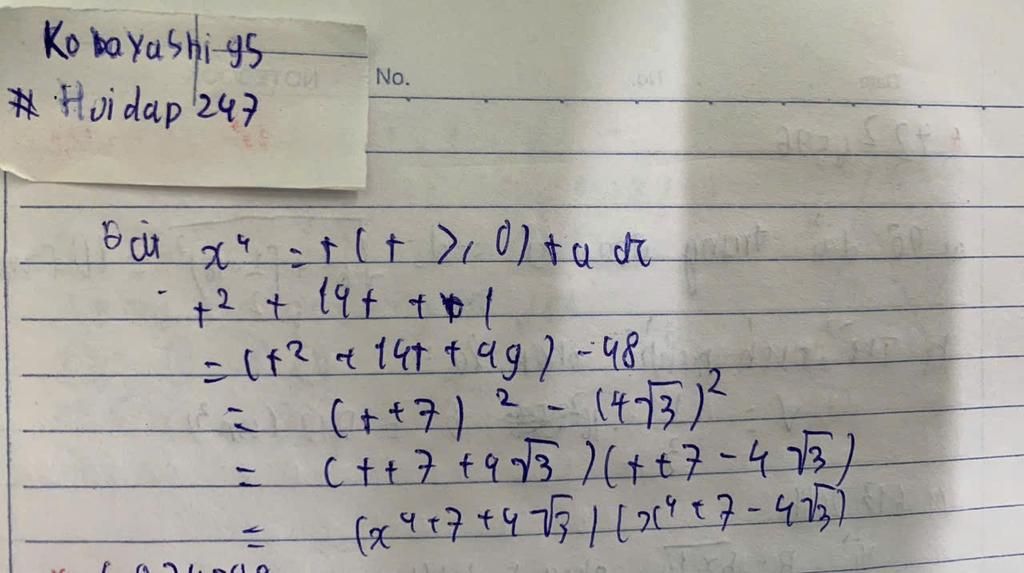 Kobayashi 95
# Hoidap 247
No.
Đặt x⁴ = t (t ≥ 0) ta dc
t² + 14t + 1
= (t² + 14t + 49) - 48
= (t+7)² - (4√3)²
= (t+7+4√3)(t+7-4√3)
= (x⁴+7+4√3)(x⁴+7-4√3)